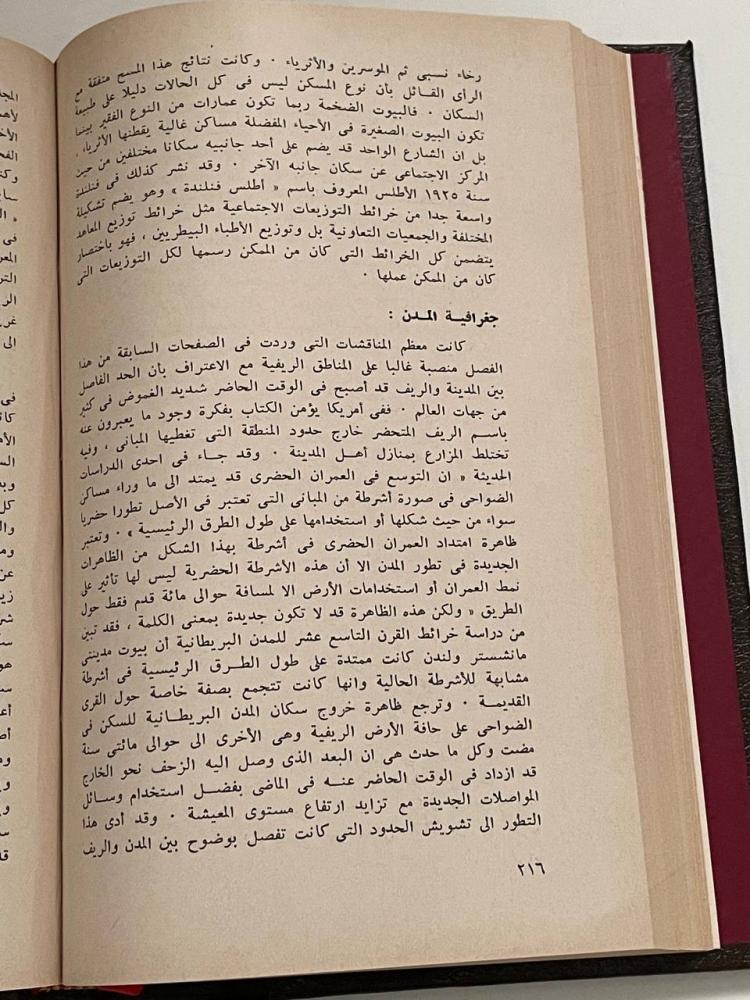 رخاء نسبى ثم الموسرين والأثرياء . وكانت نتائج هذا المسح متفقة مع
الرأى القائل بأن نوع المسكن ليس فى كل الحالات دليلا على طبيعة
السكان . فالبيوت الضخمة ربما تكون عمارات من النوع الفقير بينما
تكون البيوت الصغيرة فى الأحياء المفضلة مساكن غالية يقطنها الأثرياء .
بل ان الشارع الواحد قد يضم على أحد جانبيه سكانا مختلفين من حيث
المركز الاجتماعى عن سكان جانبه الآخر . وقد نشر كذلك فى فنلندة
سنة ١٩٢٥ الأطلس المعروف باسم « أطلس فنلندة » وهو يضم تشكيلة
واسعة جدا من خرائط التوزيعات الاجتماعية مثل خرائط توزيع المعاهد
المختلفة والجمعيات التعاونية بل وتوزيع الأطباء البيطريين ، فهو باختصار
يتضمن كل الخرائط التى كان من الممكن رسمها لكل التوزيعات التى
كان من الممكن عملها .
جغرافية المدن :
كانت معظم المناقشات التى وردت فى الصفحات السابقة من هذا
الفصل منصبة غالبا على المناطق الريفية مع الاعتراف بأن الحد الفاصل
بين المدينة والريف قد أصبح فى الوقت الحاضر شديد الغموض فى كثير
من جهات العالم . ففى أمريكا يؤمن الكتاب بفكرة وجود ما يعبرون عنه
باسم الريف المتحضر خارج حدود المنطقة التى تغطيها المبانى ، وفيه
تختلط المزارع بمنازل أهل المدينة . وقد جاء فى احدى الدراسات
الحديثة « ان التوسع فى العمران الحضرى قد يمتد الى ما وراء مساكن
الضواحى فى صورة أشرطة من المبانى التى تعتبر فى الأصل تطورا حضريا
سواء من حيث شكلها أو استخدامها على طول الطرق الرئيسية » . وتعتبر
ظاهرة امتداد العمران الحضرى فى أشرطة بهذا الشكل من الظاهرات
الجديدة فى تطور المدن الا أن هذه الأشرطة الحضرية ليس لها تأثير على
نمط العمران أو استخدامات الأرض الا لمسافة حوالى مائة قدم فقط حول
الطريق « ولكن هذه الظاهرة قد لا تكون جديدة بمعنى الكلمة ، فقد تبين
من دراسة خرائط القرن التاسع عشر للمدن البريطانية أن بيوت مدينتى
مانشستر ولندن كانت ممتدة على طول الطرق الرئيسية فى أشرطة
مشابهة للأشرطة الحالية وانها كانت تتجمع بصفة خاصة حول القرى
القديمة . وترجع ظاهرة خروج سكان المدن البريطانية للسكن فى
الضواحى على حافة الأرض الريفية وهى الأخرى الى حوالى مائتى سنة
مضت وكل ما حدث هى ان البعد الذى وصل اليه الزحف نحو الخارج
قد ازداد فى الوقت الحاضر عنه فى الماضى بفضل استخدام وسائل
المواصلات الجديدة مع تزايد ارتفاع مستوى المعيشة . وقد أدى هذا
التطور الى تشويش الحدود التى كانت تفصل بوضوح بين المدن والريف
٢١٦